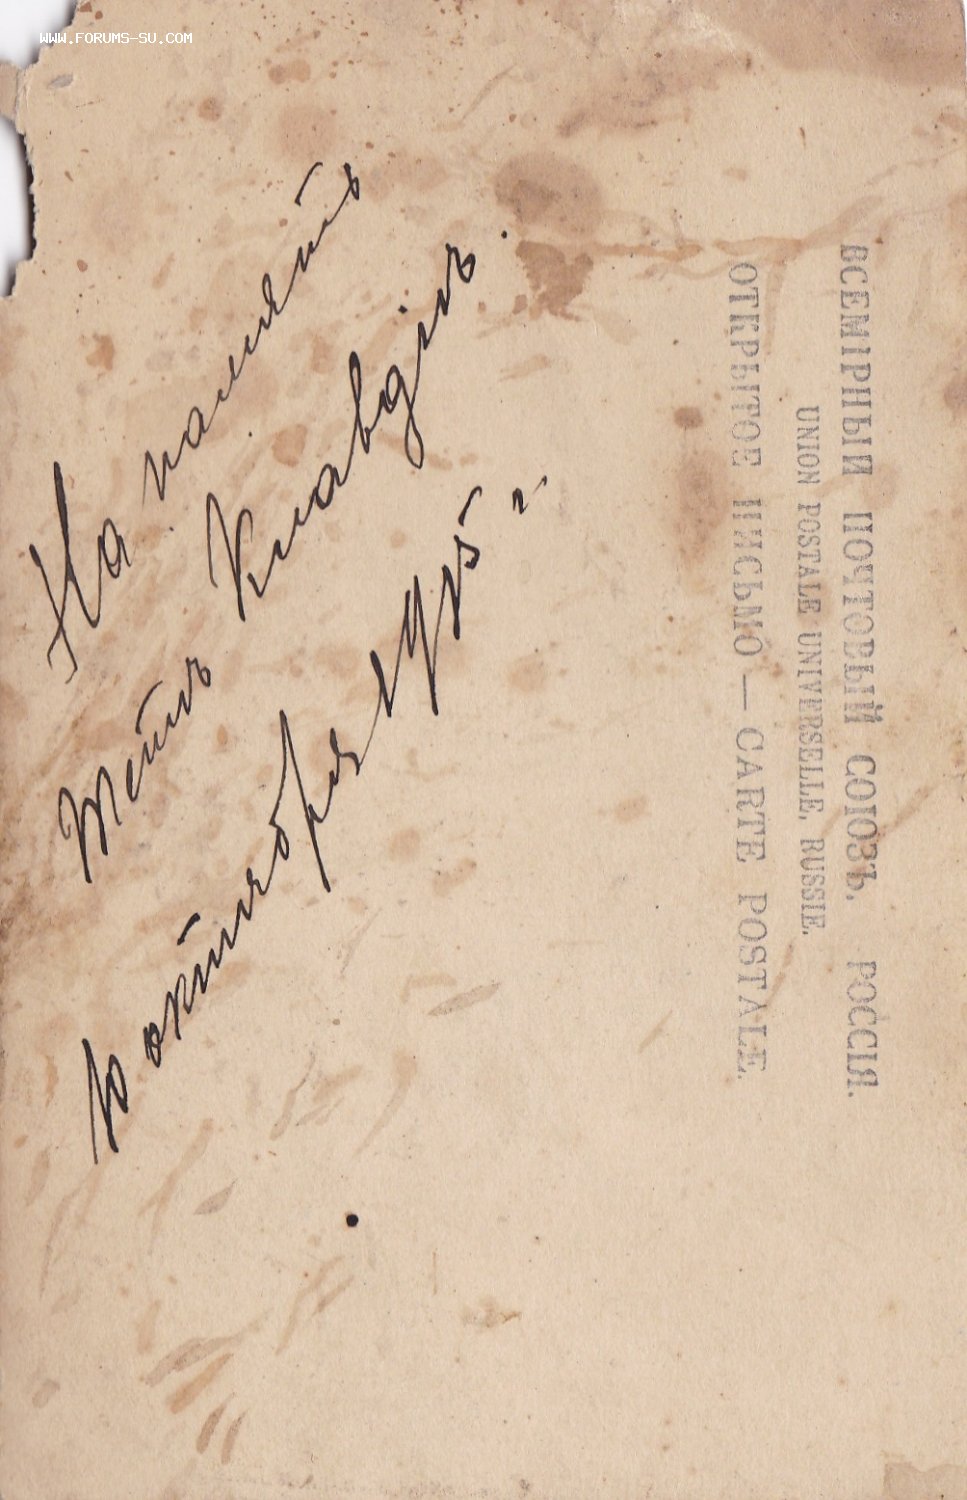 WWW.FORUMS-SU.COM
ВСЕМІРНЫЙ ПОЧТОВЫЙ СОЮЗЪ. РОССІЯ.
UNION POSTALE UNIVERSELLE. RUSSIE.
ОТКРЫТОЕ ПИСЬМО — CARTE POSTALE.
На память
Тетѣ Клавдіѣ.
10 октября 1915 г.